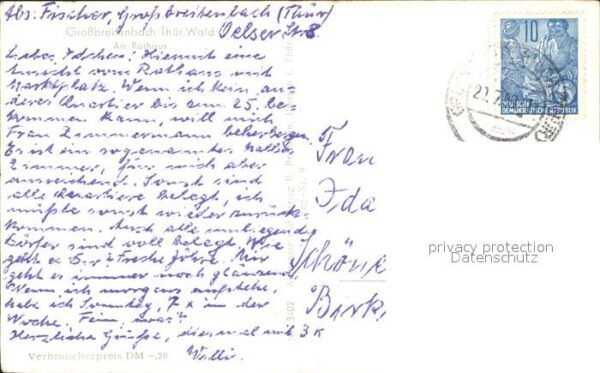 Abs: Fischer, Großbreitenbach (Thür)
Oelser Str. 8
Großbreitenbach Thür. Wald
Am Rathaus
Hiermit eine
Ansicht vom Rathaus mit
Marktplatz. Wenn ich kein an-
deres Quartier bis am 25. be-
kommen kann, will mich
Frau Zimmermann beherbergen.
Es ist ein sogenanntes
Zimmer, für mich aber
ausreichend. Sonst sind
alle Quartiere belegt, ich
müßte sonst wieder zurück-
kommen. Auch alle umliegenden
Dörfer sind voll belegt. Wie
geht es Mir
geht es immer noch glänzend.
Wenn ich morgens aufstehe,
habe ich Sonntag, 7 x in der
Woche. Fein, was?
Herzliche Grüße, diesmal mit 3 K
Willi.
Verbraucherpreis DM -,20
Frau
Ida
Schöne
10
DEUTSCHE
DEMOKRATISCHE REPUBLIK
privacy protection
Datenschutz